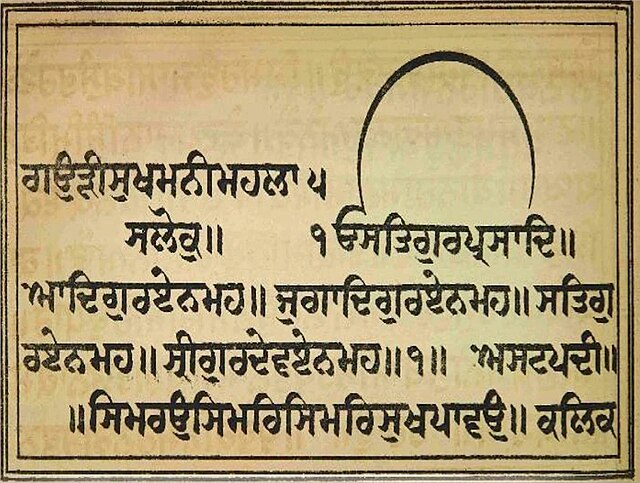 ਗਉੜੀਸੁਖਮਨੀਮਹਲਾ ੫
ਸਲੋਕੁ॥ ੧ਓਸਤਿਗੁਰਪ੍ਰਸਾਦਿ॥
ਆਦਿਗੁਰਏਨਮਹ॥ ਜੁਗਾਦਿਗੁਰਏਨਮਹ॥ ਸਤਿਗੁ
ਰਏਨਮਹ॥ ਸ੍ਰੀਗੁਰਦੇਵਏਨਮਹ॥੧॥ ਅਸਟਪਦੀ॥
॥ਸਿਮਰਉਸਿਮਰਿਸਿਮਰਿਸੁਖਪਾਵਉ॥ ਕਲਿਕ